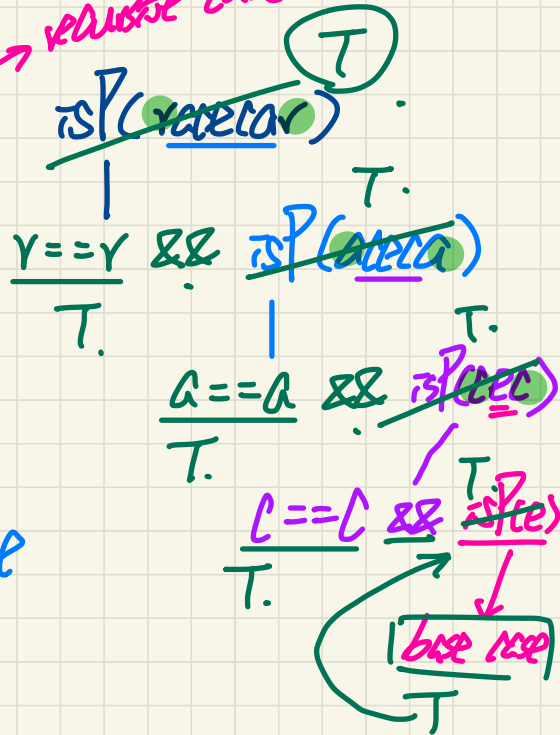 recursive
T
isP(racecar)
T.
r==r && isP(aceca)
T.
T.
a==a && isP(cec)
T.
T.
c==c && isP(e)
T.
base case
T